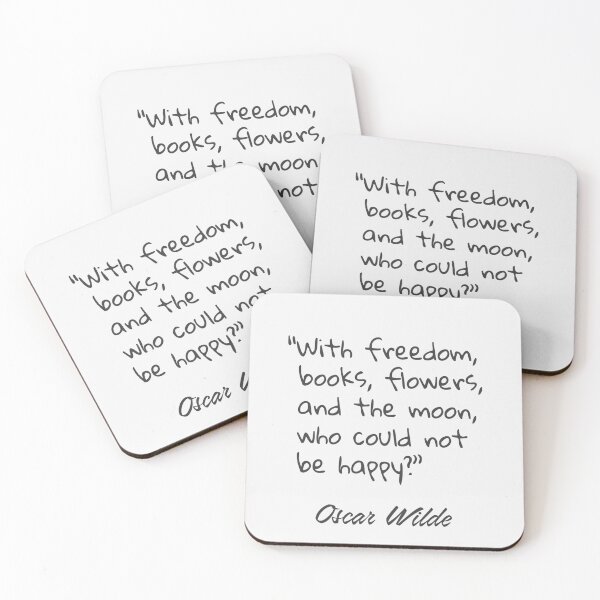 "With freedom,
books, flowers,
and the moon
not
"With freedom,
books, flowers,
and the moon,
who could not
be happy?"
"With freedom,
books, flowers,
and the moon,
who could not
be happy?"
Oscar
"With freedom,
books, flowers,
and the moon,
who could not
be happy?"
Oscar Wilde